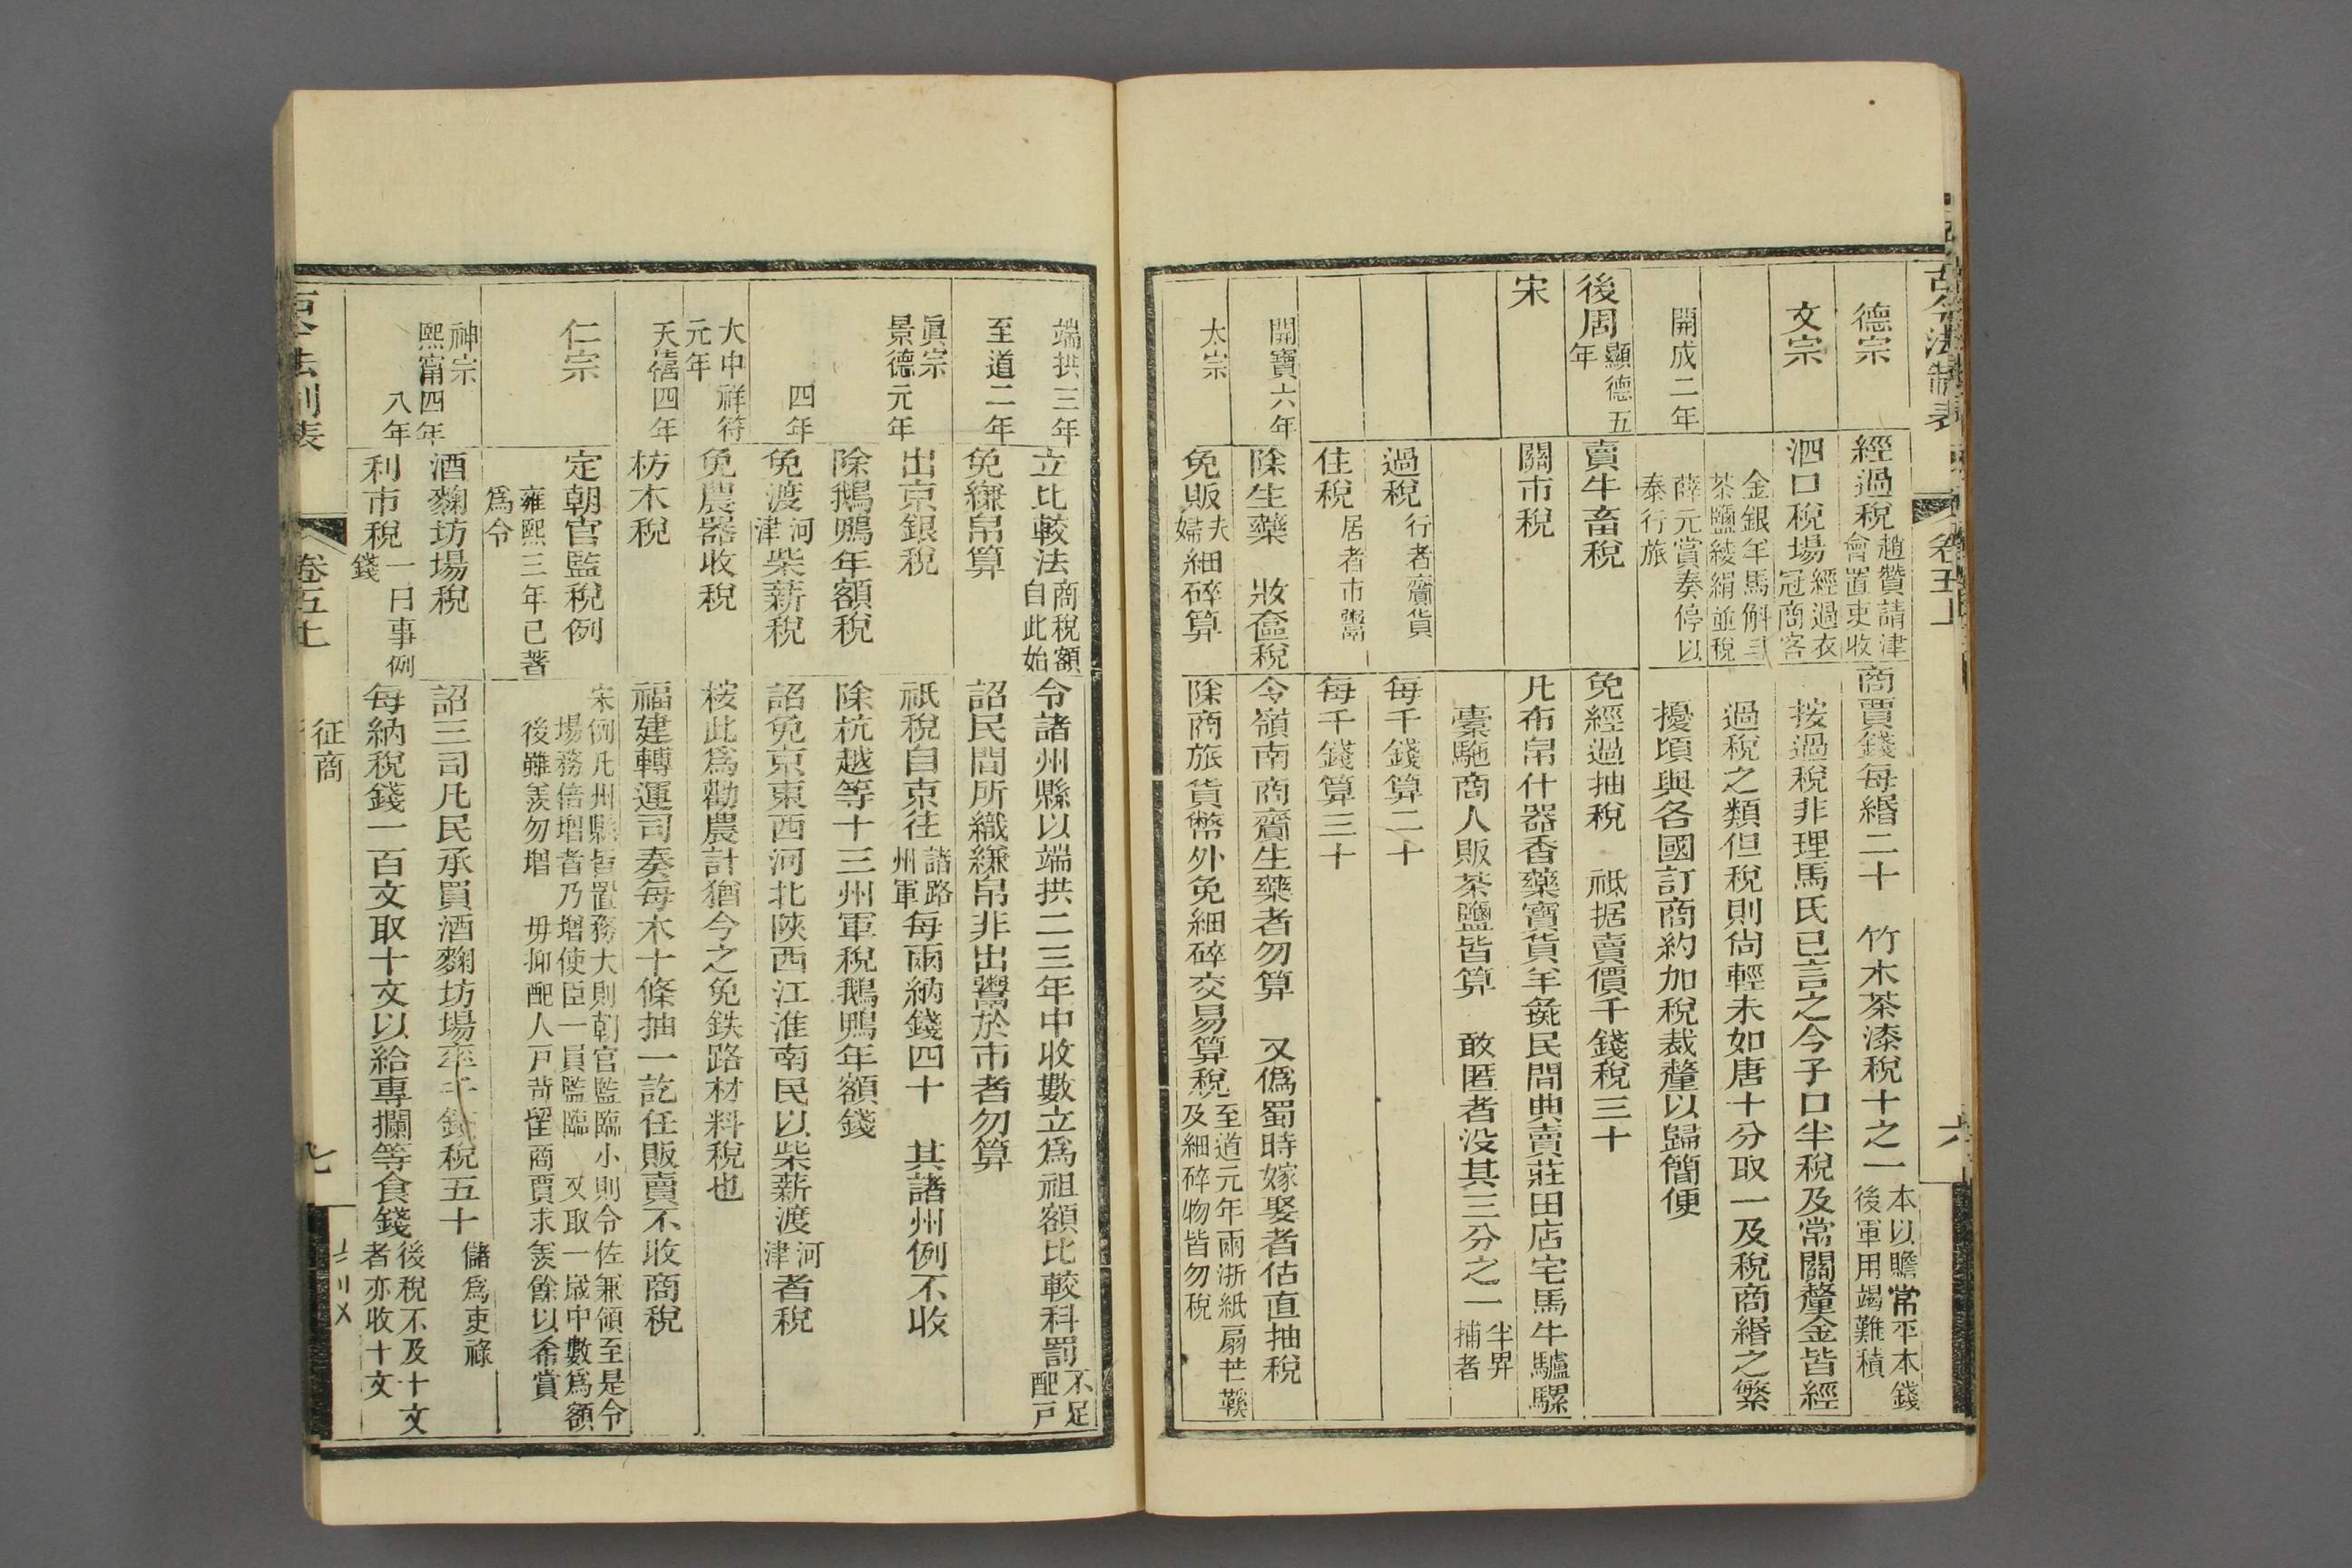 古今法制表
卷五上
六
德宗 經過稅 趙贊請津會置吏收 商賈錢每緡二十 竹木茶漆稅十之一 本以贍常平本錢後軍用竭難積
文宗 泗口稅場 經過衣冠商客 按過稅非理馬氏已言之今子口半稅及常關釐金皆經
金銀羊馬斛㪷茶鹽綾絹並稅 過稅之類但稅則尙輕未如唐十分取一及稅商緡之繁
開成二年 薛元賞奏停以泰行旅 擾頃與各國訂商約加稅裁釐以歸簡便
後周 顯德五年 賣牛畜稅 免經過抽稅 祗据賣價千錢稅三十
宋 關市稅 凡布帛什器香藥寶貨羊彘民間典賣莊田店宅馬牛驢騾
橐駞商人販茶鹽皆算 敢匿者沒其三分之一 半畀捕者
過稅 行者齎貨 每千錢算二十
住稅 居者市鬻 每千錢算三十
開寶六年 除生藥 妝奩稅 令嶺南商齎生藥者勿算 又僞蜀時嫁娶者估直抽稅
太宗 免販夫婦細碎算 除商旅貨幣外免細碎交易算稅 至道元年兩浙紙扇芒鞵及細碎物皆勿稅
端拱三年 立比較法 商稅額自此始 令諸州縣以端拱二三年中收數立爲祖額比較科罰 不足配戸
至道二年 免縑帛算 詔民間所織縑帛非出鬻於市者勿算
眞宗景德元年 出京銀稅 祇稅自京往諸路州軍每兩納錢四十 其諸州例不收
除鵝鴨年額稅 除杭越等十三州軍稅鵝鴨年額錢
四年 免渡河津柴薪稅 詔免京東西河北陝西江淮南民以柴薪渡河津者稅
大中祥符元年 免農器收稅 桉此爲勸農計猶今之免鉄路材料稅也
天禧四年 枋木稅 福建轉運司奏每木十條抽一訖任販賣不收商稅
仁宗 定朝官監稅例 宋例凡州縣皆置務大則朝官監臨小則令佐兼領至是令場務倍增者乃增使臣一員監臨 又取一歲中數爲額
雍熙三年已著爲令 後雖羨勿增 毋抑配人戸苛留商賈求羨餘以希賞
神宗熙甯四年 酒麴坊場稅 詔三司凡民承買酒麴坊場率千錢稅五十 儲爲吏祿
八年 利市稅 一曰事例錢 每納稅錢一百文取十文以給專攔等食錢 後稅不及十文者亦收十文
古今法制表
卷五上
征商
七